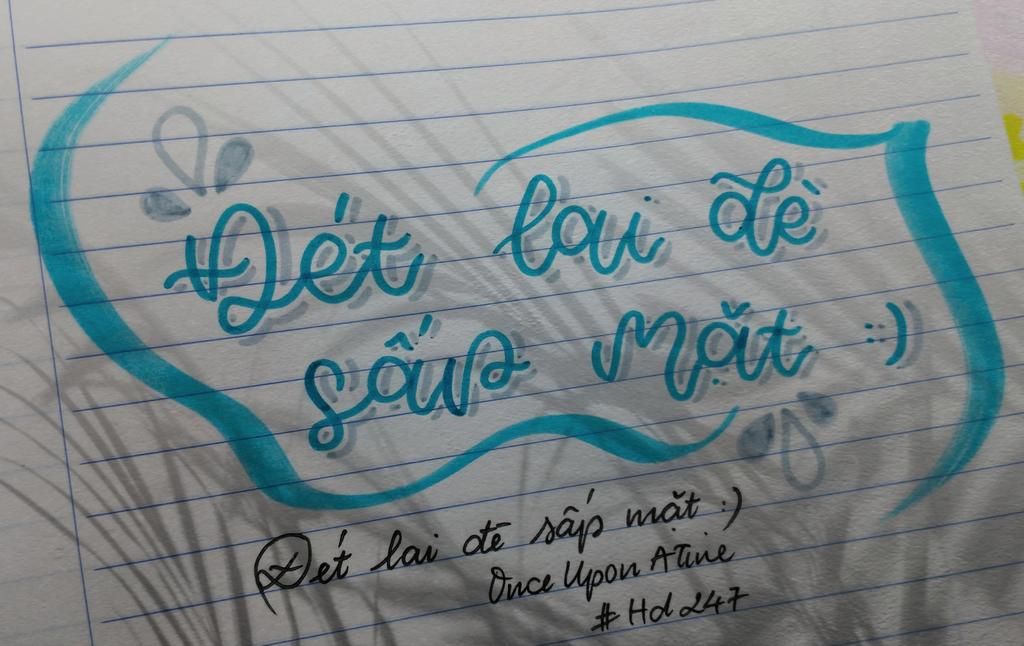 Đét lai đè
sấp mặt :)
Đét lai đè sấp mặt :)
Once Upon A Time
# Hd 247